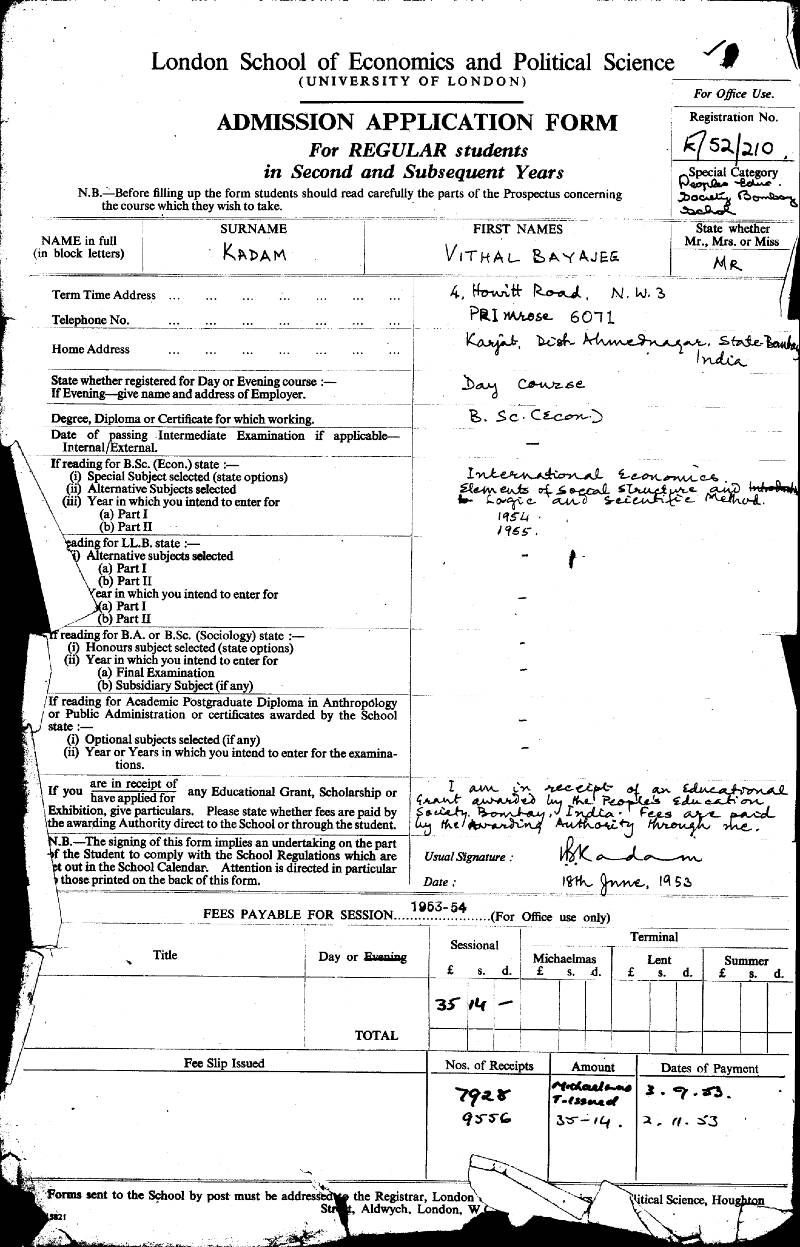 London School of Economics and Political Science
(UNIVERSITY OF LONDON)
For Office Use.
ADMISSION APPLICATION FORM
For REGULAR students
in Second and Subsequent Years
Registration No.
K/52/210
Special Category
Peoples Educ.
Society Bombay
School
N.B.—Before filling up the form students should read carefully the parts of the Prospectus concerning
the course which they wish to take.
NAME in full
(in block letters)
SURNAME
KADAM
FIRST NAMES
VITHAL BAYAJEE
State whether
Mr., Mrs. or Miss
MR
Term Time Address ... ... ... ... ... ... ... 4, Howitt Road, N.W.3
Telephone No. ... ... ... ... ... ... ... PRImrose 6071
Home Address ... ... ... ... ... ... ... Karjat, Dist Ahmednagar. State Bombay
India
State whether registered for Day or Evening course :—
If Evening—give name and address of Employer.
Day Course
Degree, Diploma or Certificate for which working. B. Sc. (Econ)
Date of passing Intermediate Examination if applicable—
Internal/External. —
If reading for B.Sc. (Econ.) state :—
(i) Special Subject selected (state options) International Economics.
(ii) Alternative Subjects selected Elements of Social Structure and
Logic and Scientific Method.
(iii) Year in which you intend to enter for
(a) Part I 1954.
(b) Part II 1955.
eading for LL.B. state :—
i) Alternative subjects selected -
(a) Part I
(b) Part II
Year in which you intend to enter for -
(a) Part I
(b) Part II
If reading for B.A. or B.Sc. (Sociology) state :—
(i) Honours subject selected (state options) -
(ii) Year in which you intend to enter for
(a) Final Examination -
(b) Subsidiary Subject (if any)
If reading for Academic Postgraduate Diploma in Anthropology
or Public Administration or certificates awarded by the School
state :— -
(i) Optional subjects selected (if any)
(ii) Year or Years in which you intend to enter for the examina- -
tions.
If you are in receipt of / have applied for any Educational Grant, Scholarship or
Exhibition, give particulars. Please state whether fees are paid by
the awarding Authority direct to the School or through the student.
I am in receipt of an Educational
Grant awarded by the People's Education
Society, Bombay, India. Fees are paid
by the Awarding Authority through me.
N.B.—The signing of this form implies an undertaking on the part
of the Student to comply with the School Regulations which are
et out in the School Calendar. Attention is directed in particular
those printed on the back of this form.
Usual Signature : VBKadam
Date : 18th June, 1953
FEES PAYABLE FOR SESSION 1953-54 (For Office use only)
Title
Day or Evening
Sessional
£ s. d.
Terminal
Michaelmas
£ s. d.
Lent
£ s. d.
Summer
£ s. d.
35 14 -
TOTAL
Fee Slip Issued
Nos. of Receipts
Amount
Dates of Payment
7928 Michaelmas T-issued 3.9.53.
9556 35-14. 2.11.53
Forms sent to the School by post must be addressed the Registrar, London litical Science, Houghton
Aldwych, London, W